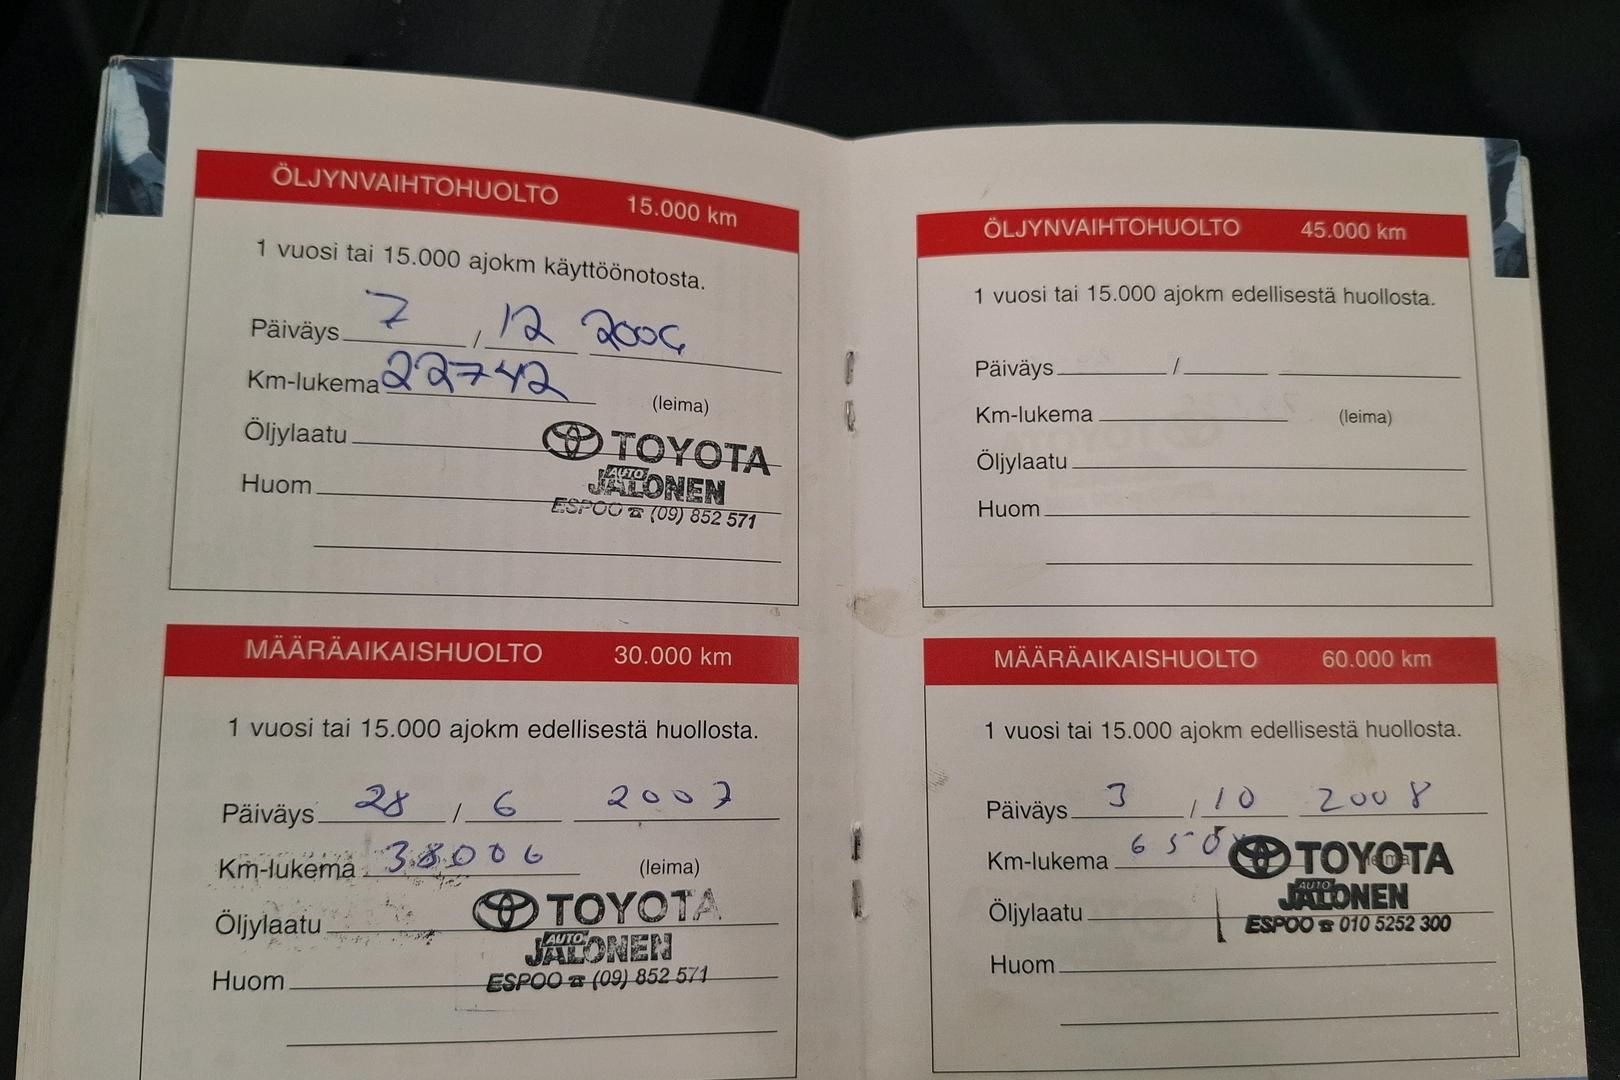 ÖLJYNVAIHTOHUOLTO 15.000 km
1 vuosi tai 15.000 ajokm käyttöönotosta.
Päiväys 7 / 12 2006
Km-lukema 22742
(leima)
Öljylaatu
TOYOTA
AUTO
JALONEN
Huom
ESPOO ☎ (09) 852 571
MÄÄRÄAIKAISHUOLTO 30.000 km
1 vuosi tai 15.000 ajokm edellisestä huollosta.
Päiväys 28 / 6 2007
Km-lukema 38006
(leima)
Öljylaatu
TOYOTA
AUTO
JALONEN
Huom
ESPOO ☎ (09) 852 571
ÖLJYNVAIHTOHUOLTO 45.000 km
1 vuosi tai 15.000 ajokm edellisestä huollosta.
Päiväys /
Km-lukema (leima)
Öljylaatu
Huom
MÄÄRÄAIKAISHUOLTO 60.000 km
1 vuosi tai 15.000 ajokm edellisestä huollosta.
Päiväys 3 / 10 2008
Km-lukema
(leima)
TOYOTA
AUTO
JALONEN
Öljylaatu
ESPOO ☎ 010 5252 300
Huom